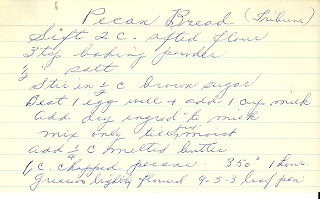 Pecan Bread (Tribune)
Sift 2 C. sifted flour
3 tsp baking powder
1/2 salt
Stir in 1/2 c brown sugar
Beat 1 egg well & add 1 cup milk
Add dry ingred to milk
mix only till just moist
add 1/4 c melted butter
1 C. chopped pecans. 350° 1 hour.
Greased lightly floured 9-5-3 loaf pan